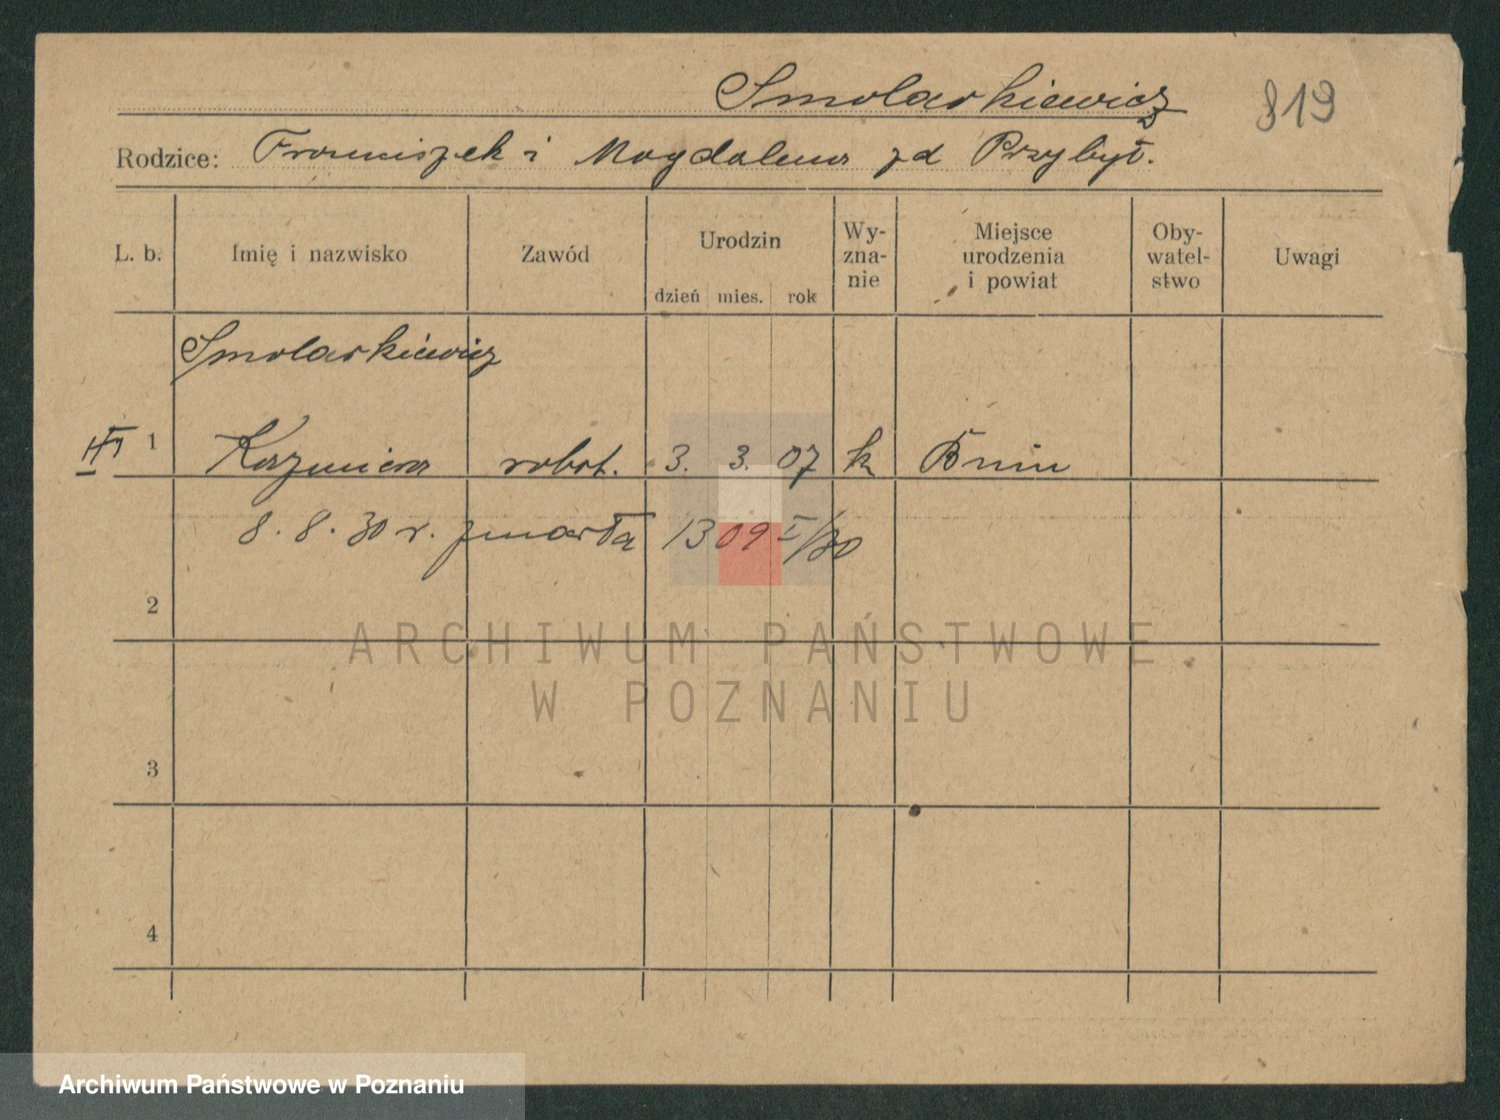 Smolarkiewicz 819
Rodzice: Franciszek i Magdalena zd Przybył.
L. b. Imię i nazwisko Zawód Urodzin dzień mies. rok Wy-zna-nie Miejsce urodzenia i powiat Oby-watel-stwo Uwagi
Smolarkiewicz
1 Kazimiera robot. 3. 3. 07 k Bnin
8. 8. 30 r. zmarła 1309 I/30
2
ARCHIWUM PAŃSTWOWE
W POZNANIU
3
4
Archiwum Państwowe w Poznaniu